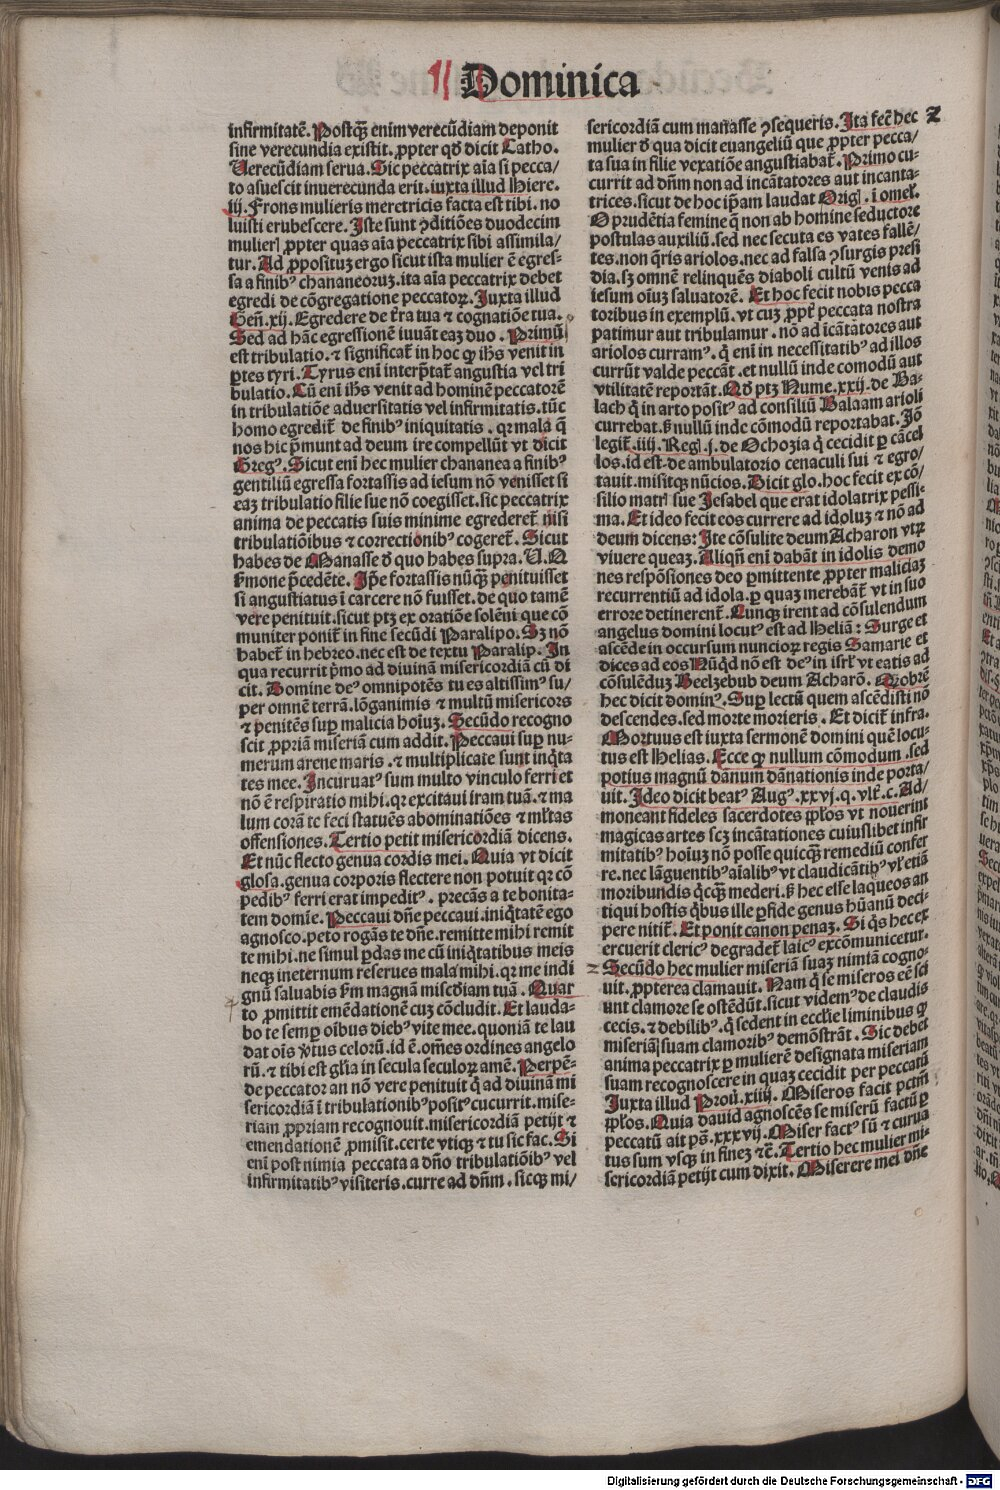 Dominica
infirmitatē. Postq̄ enim verecūdiam deponit
sine verecundia existit. ꝓpter qd̄ dicit Catho.
Uerecūdiam serua. Sic peccatrix aīa si pecca/
to asuescit inuerecunda erit. iuxta illud Hiere.
iij. Frons mulieris meretricis facta est tibi. no
luisti erubescere. Iste sunt ꝯditiōes duodecim
mulierꝭ ꝓpter quas aīa peccatrix sibi assimila/
tur. Ad ꝓpositūꝫ ergo sicut ista mulier ē egres-
sa a finibꝰ chananeoruꝫ. ita aīa peccatrix debet
egredi de cōgregatione peccatoꝝ. Iuxta illud
Gen̄. xij. Egredere de t̄ra tua ⁊ cognatiōe tua.
Sed ad hāc egressionē iuuāt eaꝫ duo. Primū
est tribulatio. ⁊ significat̄ in hoc ꝙ ih̄s venit in
ꝑtes tyri. Tyrus enī interp̄tat̄ angustia vel tri
bulatio. Cū enī ih̄s venit ad hominē peccatorē
in tribulatiōe aduersitatis vel infirmitatis. tūc
homo egredit̄ de finibꝰ iniquitatis. qꝛ mala q̄
nos hic p̄munt ad deum ire compellūt vt dicit
Gregꝰ. Sicut enī hec mulier chananea a finibꝰ
gentiliū egressa fortassis ad iesum nō venisset si
eaꝫ tribulatio filie sue nō coegisset. sic peccatrix
anima de peccatis suis minime egrederet̄ nisi
tribulatiōibus ⁊ correctionibꝰ cogeret̄. Sicut
habes de Manasse d̄ quo habes supra. U. Q
s̄mone p̄cedēte. Ip̄e fortassis nūq̄ penituisset
si angustiatus ī carcere nō fuisset. de quo tamē
vere penituit. sicut ptꝫ ex oratiōe solēni que cō
muniter ponit̄ in fine secūdi Paralipo. Sꝫ nō
habet̄ in hebreo. nec est de textu Paralip. In
qua recurrit p̄mo ad diuinā misericordiā cū di
cit. Domine deꝰ omnipotēs tu es altissimꝰ su/
per omnē terrā. lōganimis ⁊ multū misericors
⁊ penitēs suꝑ malicia hoīuꝫ. Secūdo recogno
scit ꝓpriā miseriā cum addit. Peccaui suꝑ nu-
merum arene maris. ⁊ multiplicate sunt inq̄ta
tes mee. Incuruatꝰ sum multo vinculo ferri et
nō ē respiratio mihi. qꝛ excitaui iram tuā. ⁊ ma
lum corā te feci statuēs abominatiōes ⁊ ml̄tas
offensiones. Tertio petit misericordiā dicens.
Et nūc flecto genua cordis mei. Quia vt dicit
glosa. genua corporis flectere non potuit qꝛ cō
pedibꝰ ferri erat impeditꝰ. precās a te bonita-
tem domīe. Peccaui dn̄e peccaui. iniq̄tatē ego
agnosco. peto rogās te dn̄e. remitte mihi remit
te mihi. ne simul ꝑdas me cū iniq̄tatibus meis
neqꝫ ineternum reserues mala mihi. qꝛ me indi
gnū saluabis s̄m magnā misc̄diam tuā. Quar
to ꝓmittit emēdationē cuꝫ cōcludit. Et lauda-
bo te semꝑ oībus diebꝰ vite mee. quoniā te lau
dat oīs v̄tus celorū. id ē. om̄es ordines angelo
rū. ⁊ tibi est gl̄ia in secula seculoꝝ amē. Perpē-
de peccator an nō vere penituit q̄ ad diuinā mi
sericordiā ī tribulationibꝰ positꝰ cucurrit. mise-
riam ꝓpriam recognouit. misericordiā petijt ⁊
emendationē ꝓmisit. certe vtiqꝫ ⁊ tu sic fac. Si
enī post nimia peccata a dn̄o tribulatiōibꝰ vel
infirmitatibꝰ visiteris. curre ad dn̄m. sicqꝫ mi/
sericordiā cum manasse ꝯsequeris. Ita fec̄ hec Z
mulier d̄ qua dicit euangeliū que ꝓpter pecca/
ta sua in filie vexatiōe angustiabat̄. Primo cu-
currit ad dn̄m non ad incātatores aut incanta-
trices. sicut de hoc ip̄am laudat Origꝭ. ī omel̄.
O prudētia femine q̄ non ab homine seductore
postulas auxiliū. sed nec secuta es vates fallē/
tes. non q̄ris ariolos. nec ad falsa ꝯsurgis presi
dia. sꝫ omnē relinquēs diaboli cultū venis ad
iesum oīuꝫ saluatorē. Et hoc fecit nobis pecca
toribus in exemplū. vt cuꝫ ꝓpt̄ peccata nostra
patimur aut tribulamur. nō ad īcātātores aut
ariolos curramꝰ. q̄ enī in necessitatibꝰ ad illos
currūt valde peccāt. et nullū inde comodū aut
vtilitatē reportāt. Qd̄ ptꝫ Nume. xxij. de Ba-
lach q̄ in arto positꝰ ad consiliū Balaam arioli
currebat. s̄ nullū inde cōmodū reportabat. Iō
legit̄. iiij. Regꝭ. j. de Ochozia q̄ cecidit ꝑ cācel
los. id est. de ambulatorio cenaculi sui ⁊ egro/
tauit. misitqꝫ nūcios. Dicit glo. hoc fecit ex cō/
silio matrꝭ sue Iesabel que erat idolatrix pessi-
ma. Et ideo fecit eos currere ad idoluꝫ ⁊ nō ad
deum dicens: Ite cōsulite deum Acharon vtꝝ
viuere queaꝫ. Aliqn̄ enī dabāt in idolis demo
nes respōsiones deo ꝑmittente ꝓpter maliciaꝫ
recurrentiū ad idola. ꝑ quaꝫ merebāt̄ vt in suo
errore detinerent̄. Cunqꝫ irent ad cōsulendum
angelus domini locutꝰ est ad Heliā: Surge et
ascēde in occursum nuncioꝝ regis Samarie et
dices ad eos Nūqd̄ nō est deꝰ in isrl̄ vt eatis ad
cōsulēduꝫ Beelzebub deum Acharō. Quobrē
hec dicit dominꝰ. Suꝑ lectū quem ascēdisti nō
descendes. sed morte morieris. Et dicit̄ infra.
Mortuus est iuxta sermonē domini quē locu-
tus est Helias. Ecce ꝙ nullum cōmodum. sed
potius magnū dānum dānationis inde porta/
uit. Ideo dicit beatꝰ Augꝰ. xxvj. q. vlt̄. c. Ad/
moneant fideles sacerdotes ꝓpl̄os vt nouerint
magicas artes scꝫ incātationes cuiuslibet infir
mitatibꝰ hoīuꝫ nō posse quicq̄ remediū confer
re. nec lāguentibꝰ aīalibꝰ vt claudicātibꝰ vl̄ etiā
moribundis q̄cqꝫ mederi. s̄ hec esse laqueos an
tiqui hostis q̄bus ille ꝑfide genus hūanū deci-
pere nitit̄. Et ponit canon penaꝫ. Si q̄s hec ex
ercuerit clericꝰ degradet̄ laicꝰ excōmunicetur.
Secūdo hec mulier miseriā suaꝫ nimiā cogno-
uit. ꝓpterea clamauit. Nam q̄ se miseros eē sci
unt clamore se ostēdūt. sicut videmꝰ de claudis
cecis. ⁊ debilibꝰ. q̄ sedent in eccl̄ie liminibus ꝙ
miseriā suam clamoribꝰ demōstrāt. Sic debet
anima peccatrix ꝑ mulierē designata miseriam
suam recognoscere in quaꝫ cecidit per peccatū
Iuxta illud Prou. xiiij. Miseros facit pctm̄
ꝓpl̄os. Quia dauid agnoscēs se miserū factū ꝑ
peccatū ait ps̄. xxxvij. Miser factꝰ sū ⁊ curua
tus sum vsqꝫ in fineꝫ ⁊c̄. Tertio hec mulier mi-
sericordiā petijt cum dixit. Miserere mei dn̄e
Digitalisierung gefördert durch die Deutsche Forschungsgemeinschaft - DFG